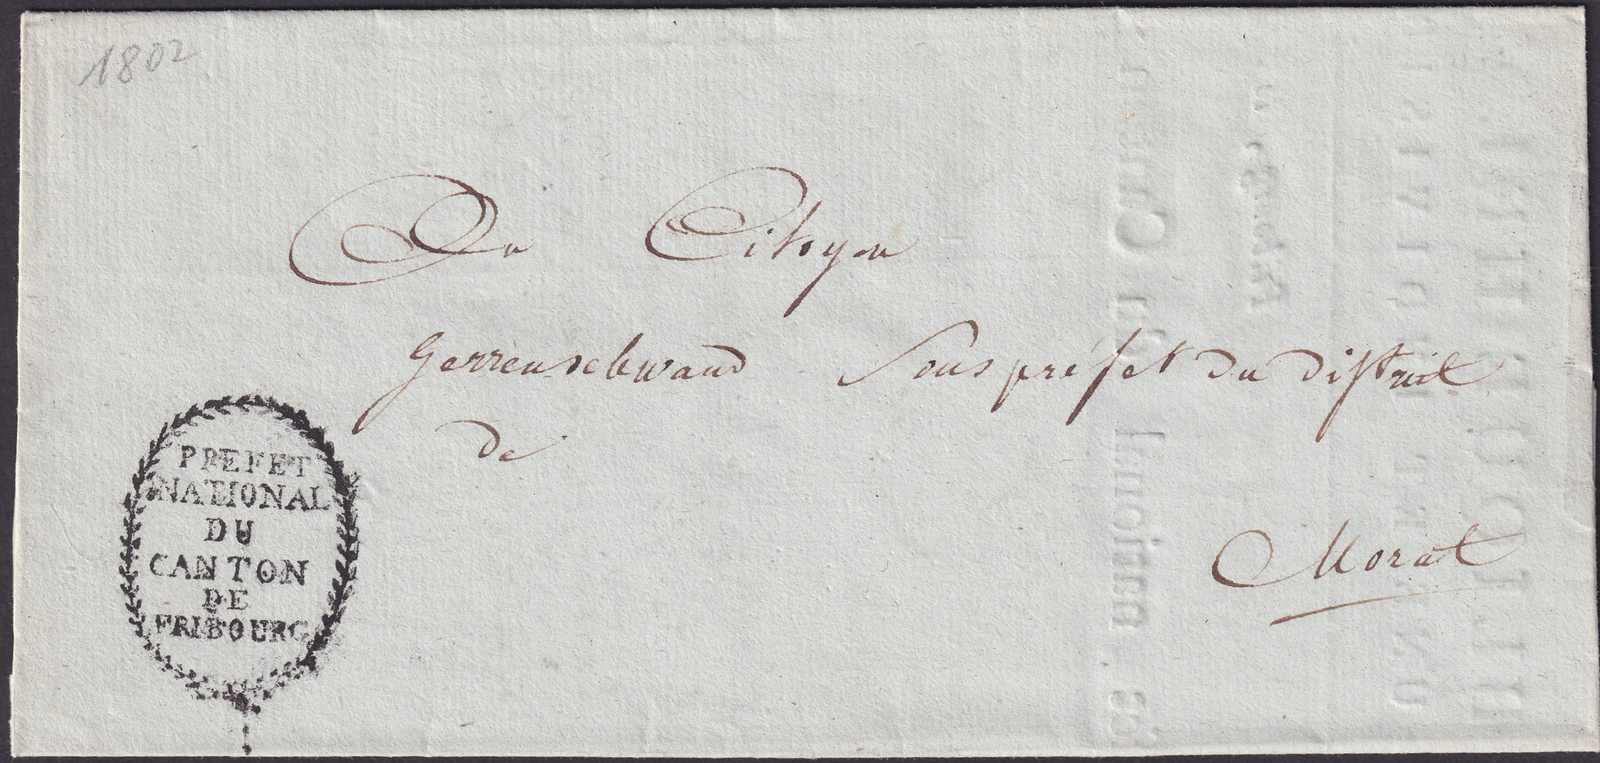 1802
Au Citoyen
Gerrenschwand Sous préfet du district
de
Morat
PREFET
NATIONAL
DU
CANTON
DE
FRIBOURG